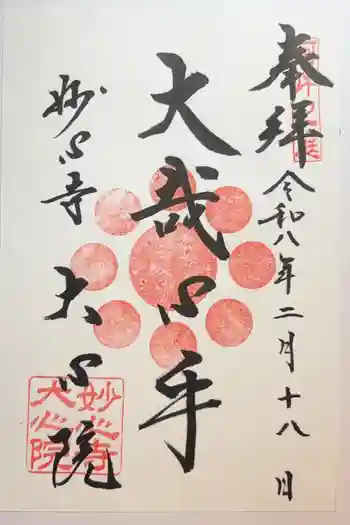 奉拝
令和八年二月十八日
大哉心手
妙心寺 大心院
妙心寺
大心院